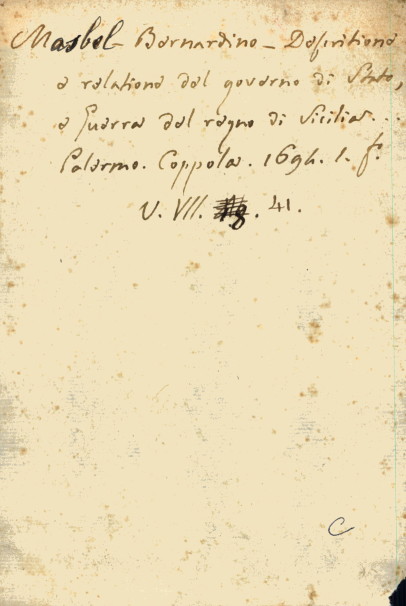 Masbel Bernardino - Descritione
e relatione del governo di Stato,
e Guerra del regno di Sicilia...
Palermo. Coppola. 1694. 1. f.
V. VII. . 41.
C